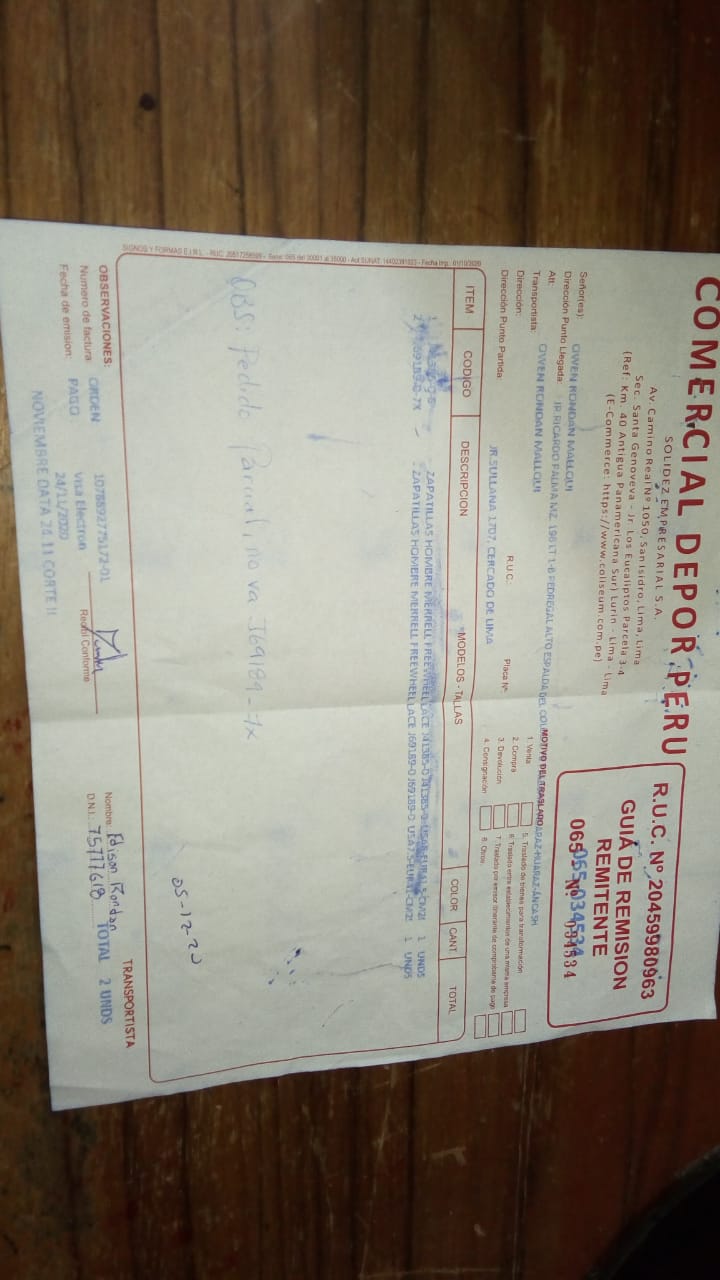 COMERCIAL DEPOR PERU
SOLIDEZ EMPRESARIAL S.A.
Av. Camino Real Nº 1050, San Isidro, Lima, Lima
Sec. Santa Genoveva - Jr. Los Eucaliptos Parcela 3-4
(Ref: Km. 40 Antigua Panamericana Sur) Lurin - Lima - Lima
(E-Commerce: https://www.coliseum.com.pe)
R.U.C. Nº 20459980963
GUIA DE REMISION
REMITENTE
065- Nº 034534
065-034534
Señor(es): OWEN RONDAN MALLQUI
Dirección Punto Llegada: JR RICARDO PALMA MZ. 196 LT 1-B PEDREGAL ALTO ESPALDA DEL HUARAZ-ANCASH
Att:
Transportista: OWEN RONDAN MALLQUI
R.U.C.:
Dirección:
Placa Nº
Dirección Punto Partida: JR.SULLANA 1707, CERCADO DE LIMA
MOTIVO DEL TRASLADO
1. Venta
2. Compra
3. Devolución
4. Consignación
5. Traslado de bienes para transformación
6. Traslado entre establecimientos de una misma empresa
7. Traslado por emisor itinerante de comprobante de pago
8. Otros
ITEM CODIGO DESCRIPCION *MODELOS - TALLAS COLOR CANT. TOTAL
1 ZAPATILLAS HOMBRE MERRELL FREEWHEEL LACE 1 UNDS
2 J69189-0-7X ZAPATILLAS HOMBRE MERRELL FREEWHEEL LACE J69189-0 J69189-0 1 UNDS
OBS: Pedido Parcial, no va J69189-7X
05-12-20
OBSERVACIONES: TRANSPORTISTA
Numero de factura: ORDEN 107889277
Fecha de emision: PAGO Visa Electron
24/11/2020
NOVIEMBRE DATA 24.11 CORTE II
Recibí Conforme
Nombre: Edison Rondan
D.N.I.: 75777618
TOTAL 2 UNDS